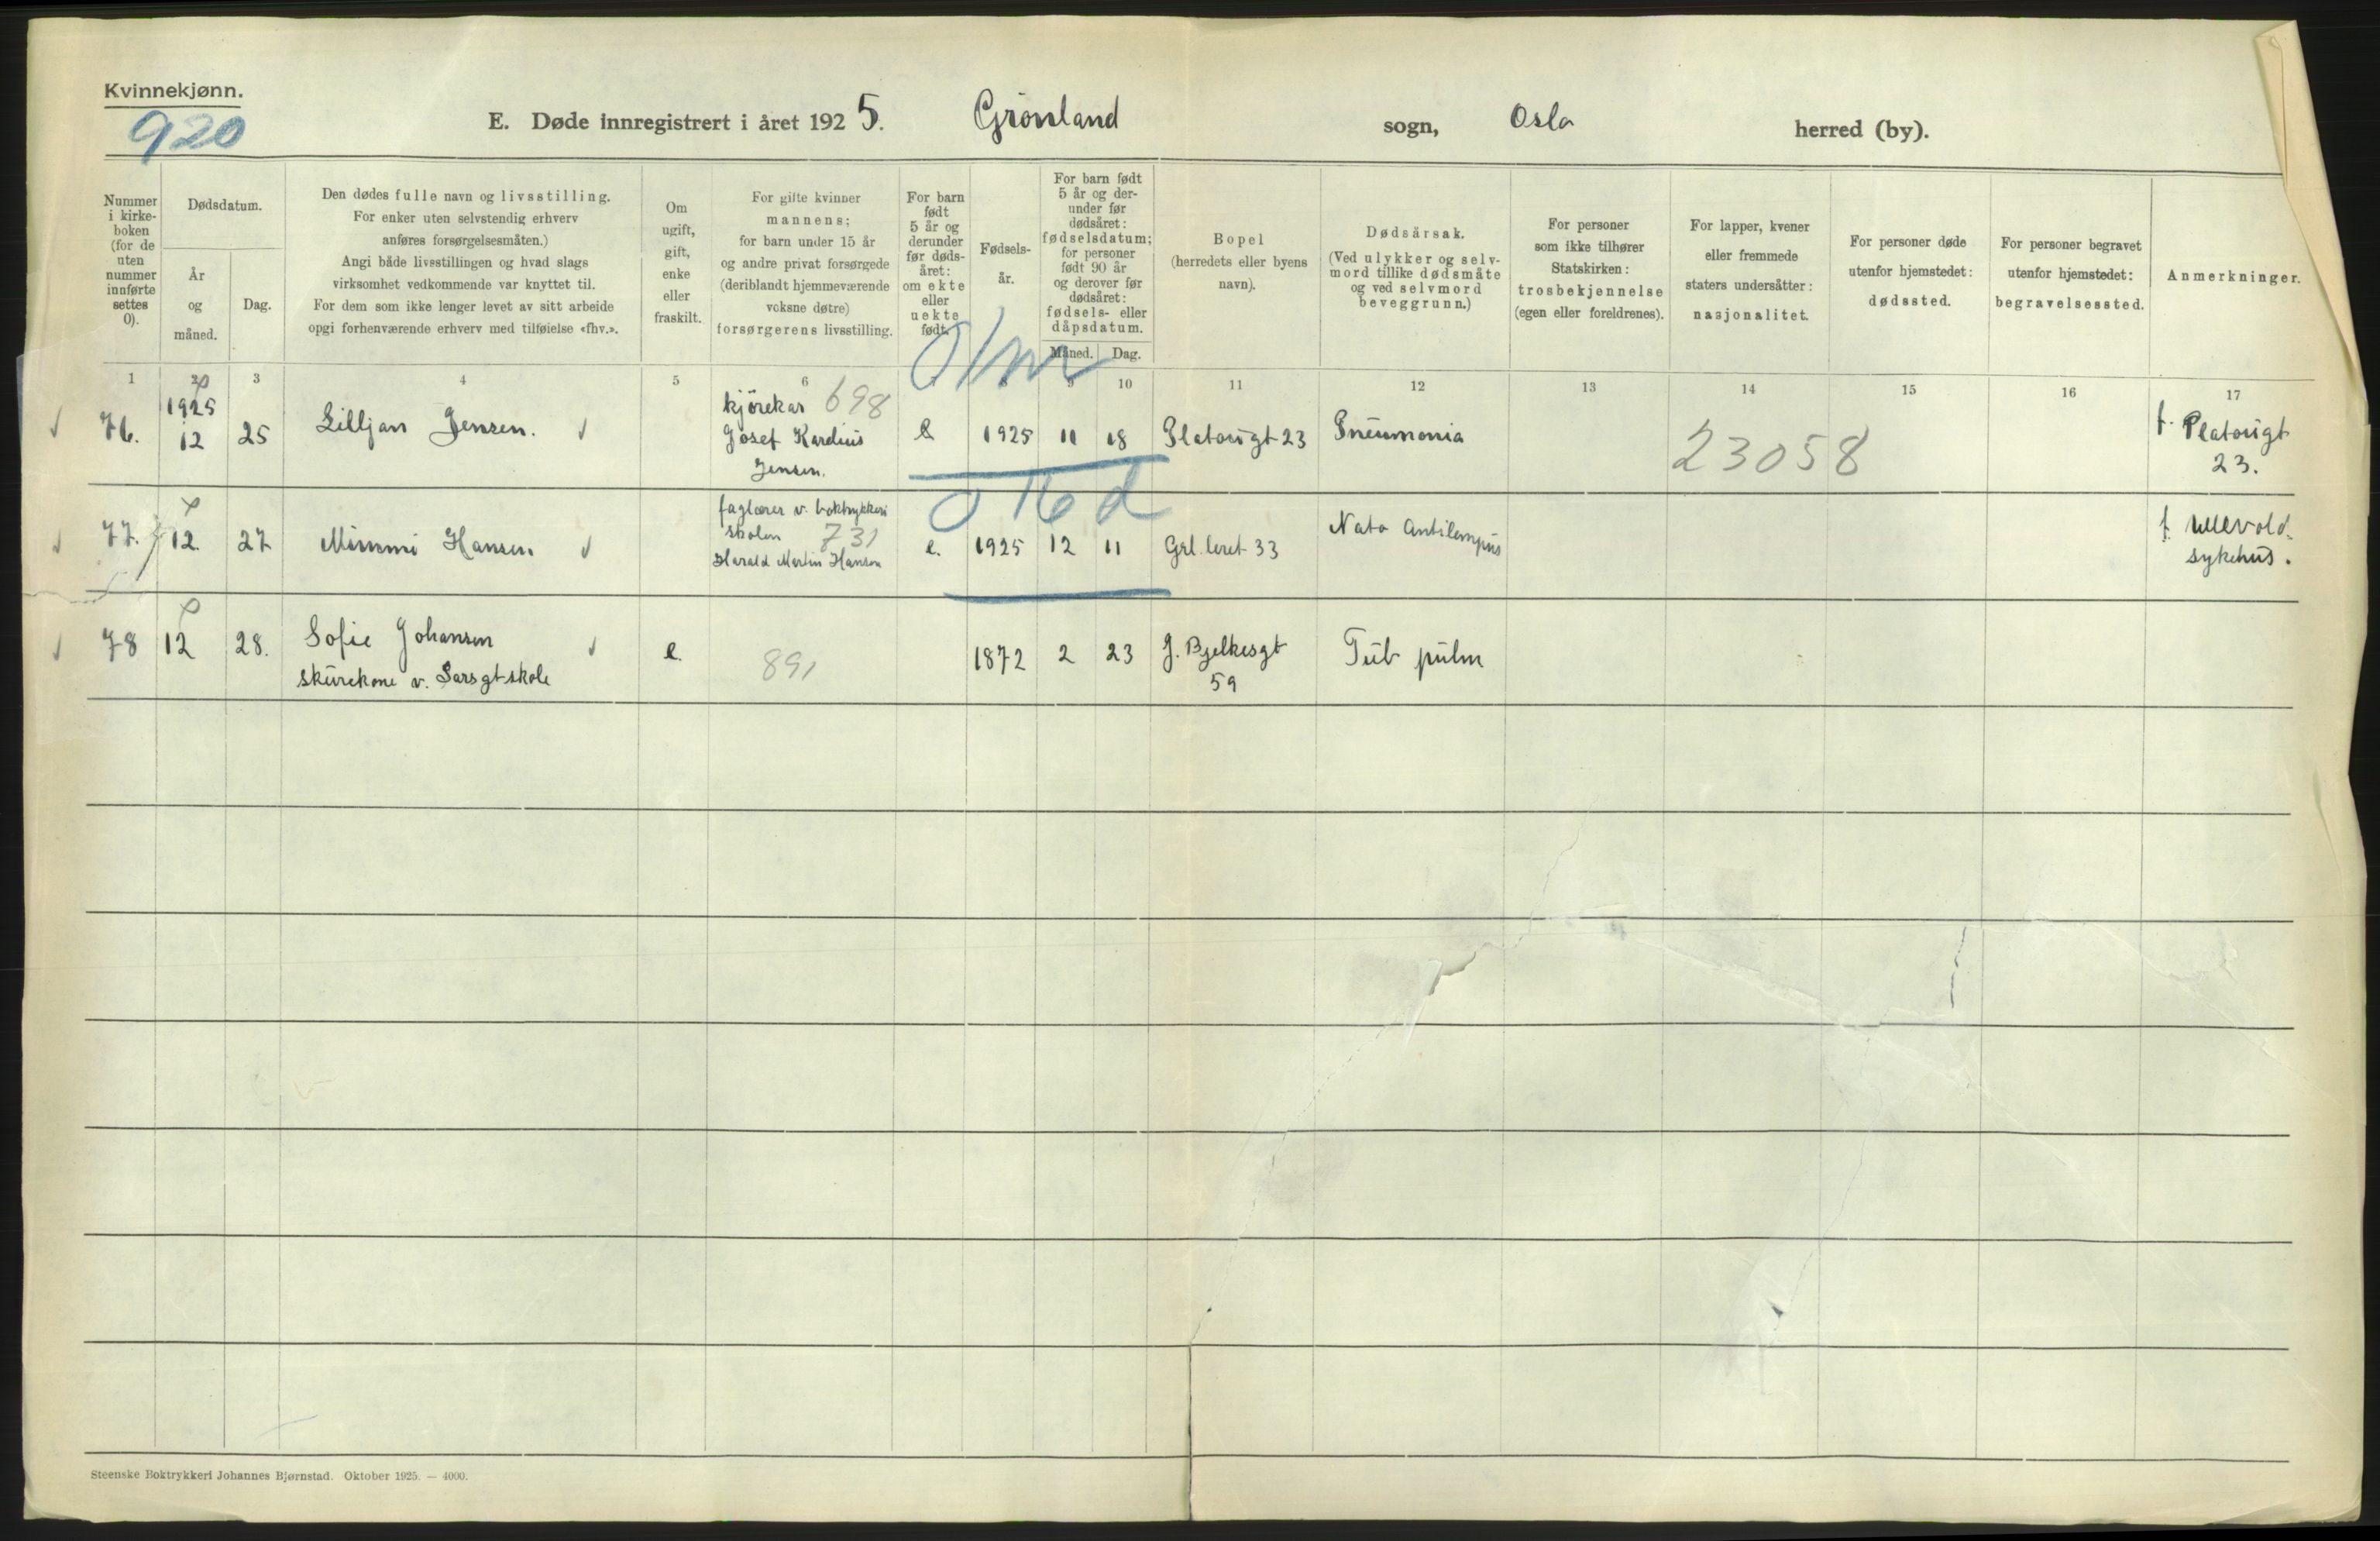 Kvinnekjønn.
920
E. Døde innregistrert i året 1925. Grønland sogn, Oslo herred (by).
Nummer i kirke- boken (for de uten nummer innførte settes 0).
Dødsdatum.
År og måned.
Dag.
Den dødes fulle navn og livsstilling.
For enker uten selvstendig erhverv
anføres forsørgelsesmåten.)
Angi både livsstillingen og hvad slags
virksomhet vedkommende var knyttet til.
For dem som ikke lenger levet av sitt arbeide
opgi forhenværende erhverv med tilføielse «fhv.».
Om
ugift,
gift,
enke
eller
fraskilt.
For gifte kvinner
mannens;
for barn under 15 år
og andre privat forsørgede
(deriblandt hjemmeværende
voksne døtre)
forsørgerens livsstilling.
For barn
født
5 år og
derunder
før døds-
året:
om ekte
eller
uekte
født.
Fødsels-
år.
For barn født
5 år og der-
under før
dødsåret:
fødselsdatum;
for personer
født 90 år
og derover før
dødsåret:
fødsels- eller
dåpsdatum.
Måned. Dag.
Bopel
(herredets eller byens
navn).
Dødsårsak.
(Ved ulykker og selv-
mord tillike dødsmåte
og ved selvmord
beveggrunn.)
For personer
som ikke tilhører
Statskirken:
trosbekjennelse
(egen eller foreldrenes).
For lapper, kvener
eller fremmede
staters undersåtter:
nasjonalitet.
For personer døde
utenfor hjemstedet:
dødssted.
For personer begravet
utenfor hjemstedet:
begravelsessted.
Anmerkninger.
1 2 3 4 5 6 7 8 9 10 11 12 13 14 15 16 17
0/m
76. 1925 12 25 Lilljan Jensen. kjörekar 698
Josef Karelius
Jensen.
E 1925 11 18 Platousgt 23 Pneumonia 23058 f. Platousgt
23.
77. 12. 27 Mimmi Hansen faglærer v. boktrykkeri
skolen 731
Harald Martin Hansen
16 d
e. 1925 12 11 Grl. leret 33 Nato Antilempus f. Ullevold.
sykehus.
78 12 28. Sofie Johansen
skurekone v. Sarsgt skole
e. 891 1872 2 23 J. Bjelkesgt
59
Tub pulm
Steenske Boktrykkeri Johannes Bjørnstad. Oktober 1925. — 4000.